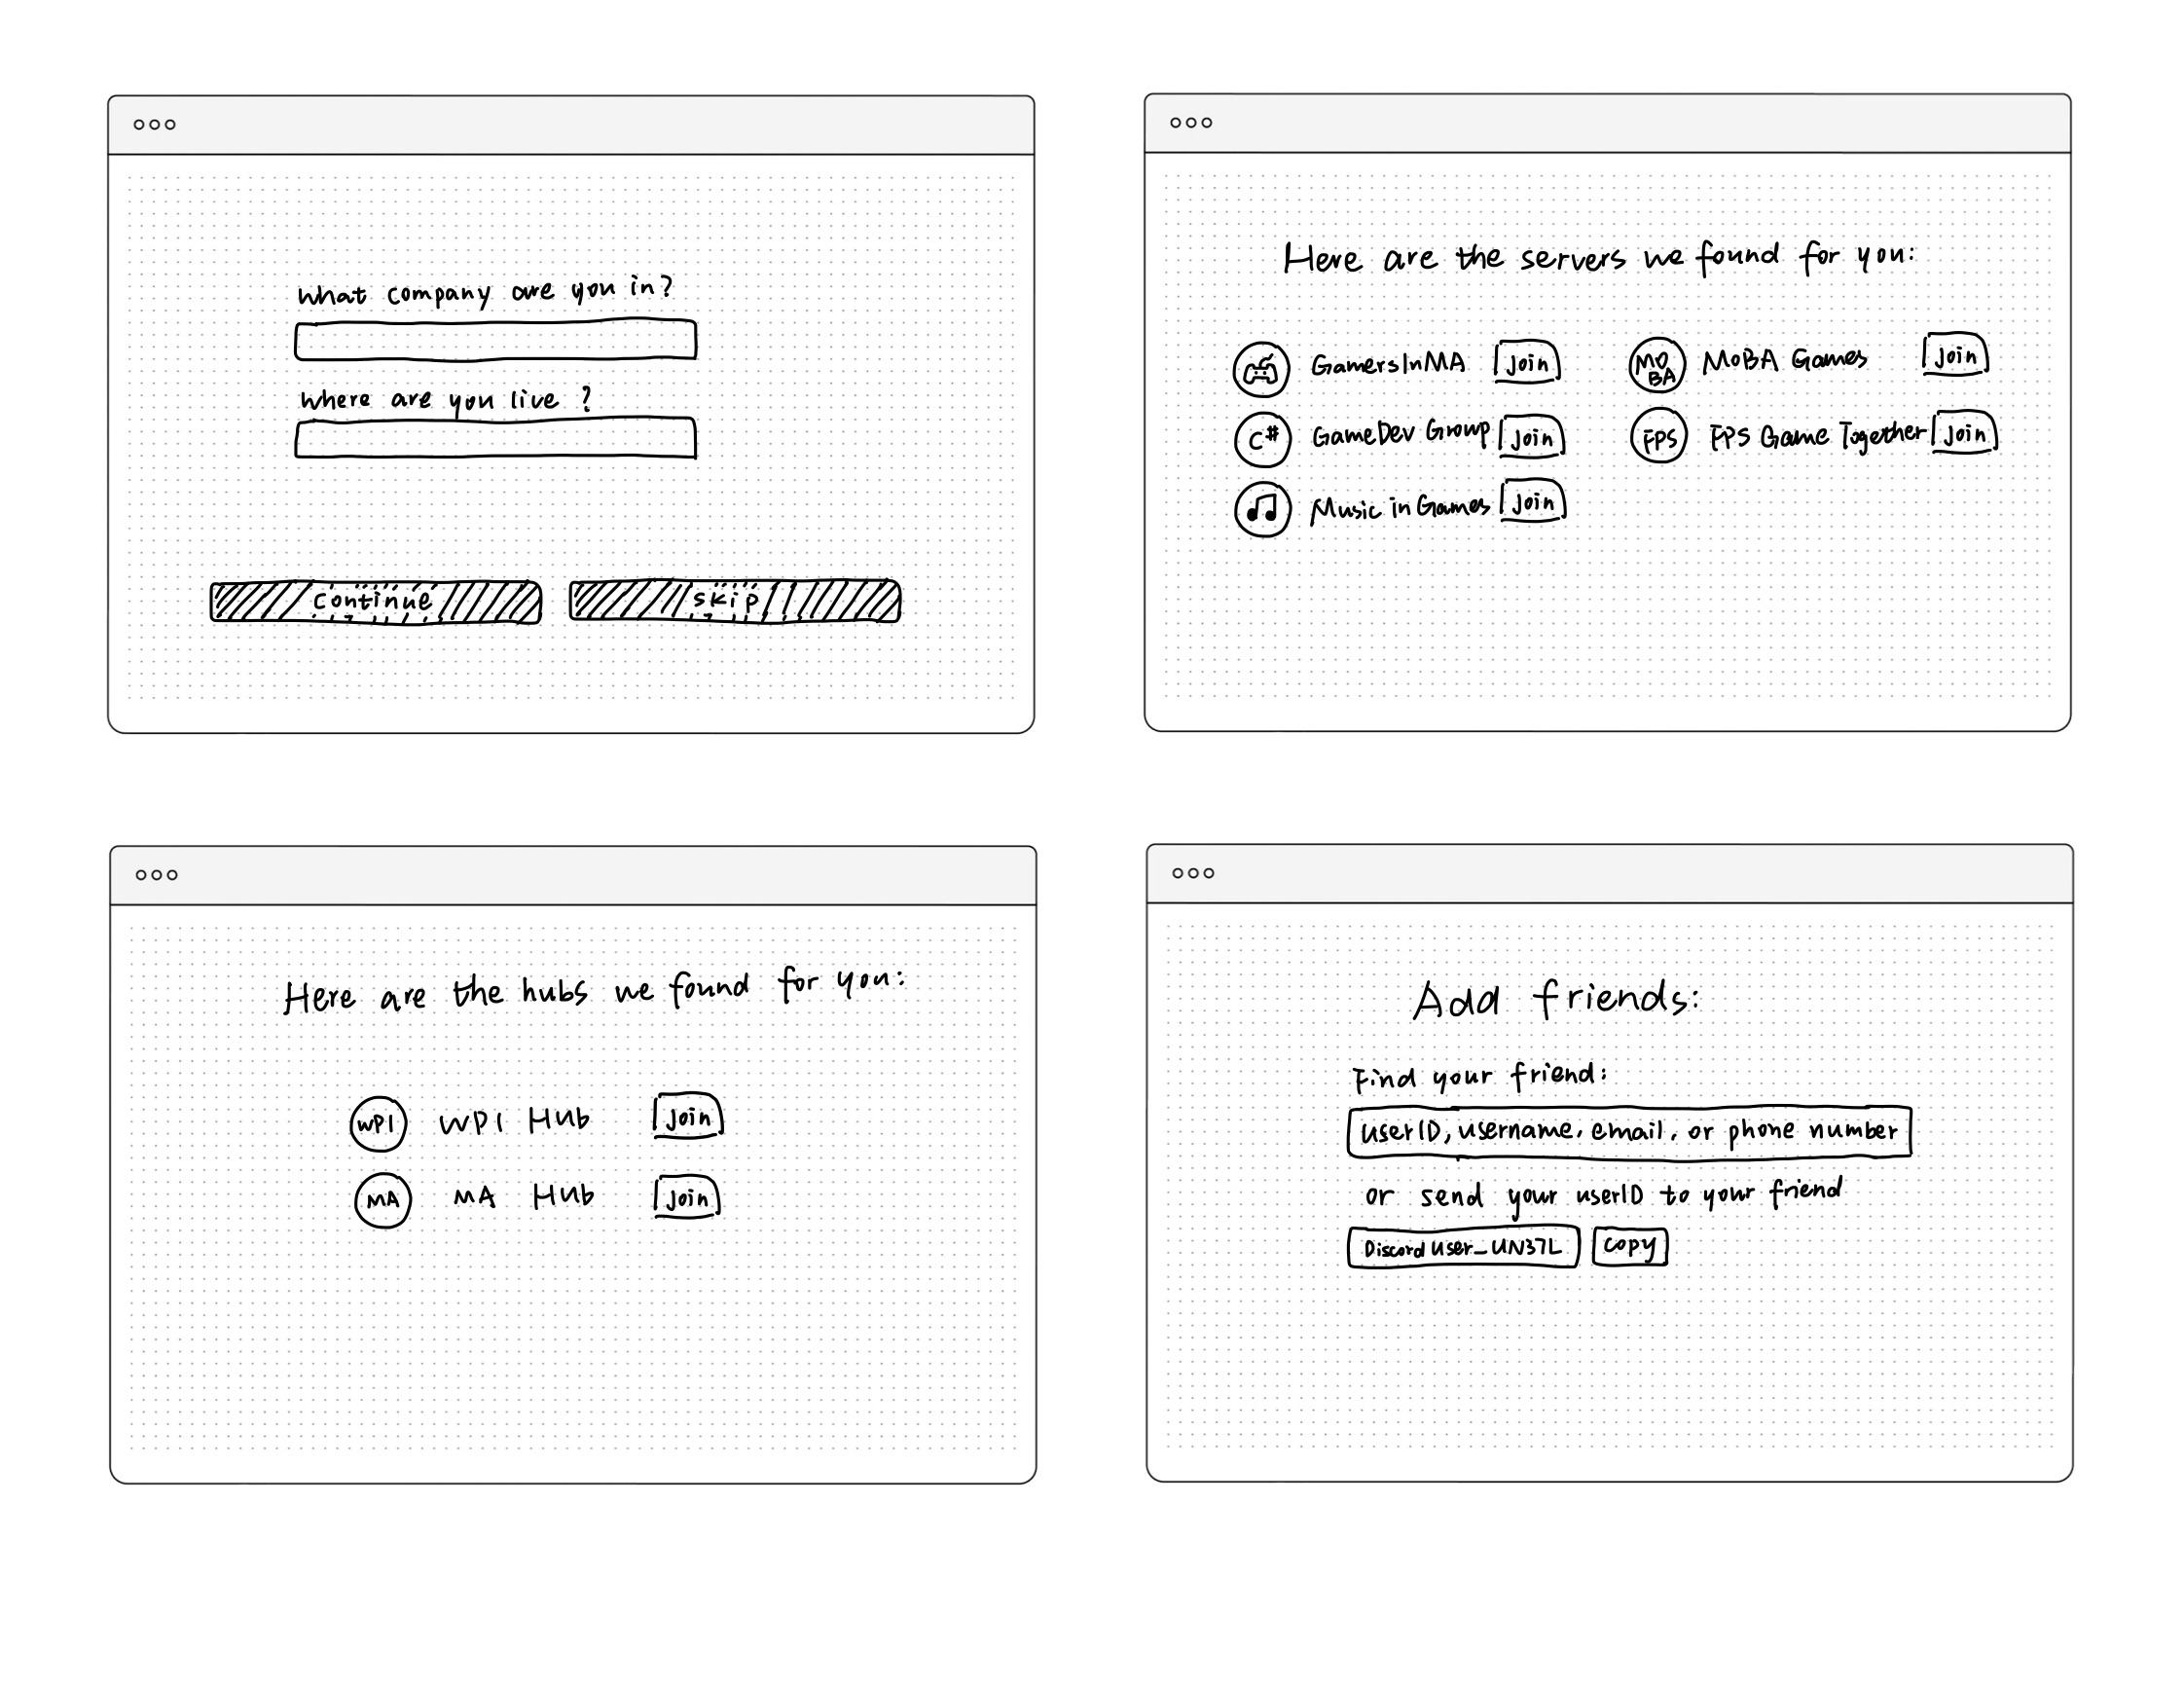 What company are you in?
Where are you live ?
Continue
skip
Here are the servers we found for you:
GamersInMA
Join
MO
BA
MOBA Games
Join
C#
GameDev Group
Join
FPS
FPS Game Together
Join
Music in Games
Join
Here are the hubs we found for you:
WPI
WPI Hub
Join
MA
MA Hub
Join
Add friends:
Find your friend:
userID, username, email, or phone number
or send your userID to your friend
DiscordUser_UN37L
Copy